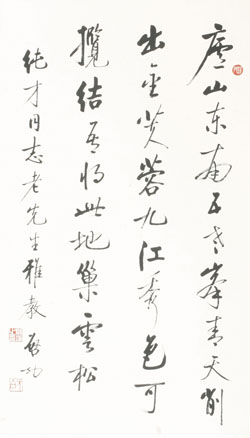 廬山东南五老峯青天削
出金芙蓉九江秀色可
攬結吾将此地巢雲松
純才同志老先生雅教 啓功